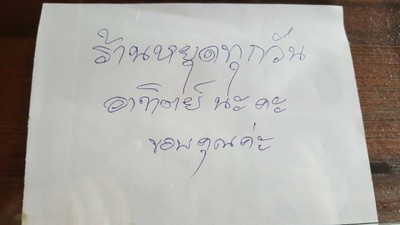 ร้านหยุดทุกวัน
อาทิตย์ นะ คะ
ขอบคุณค่ะ